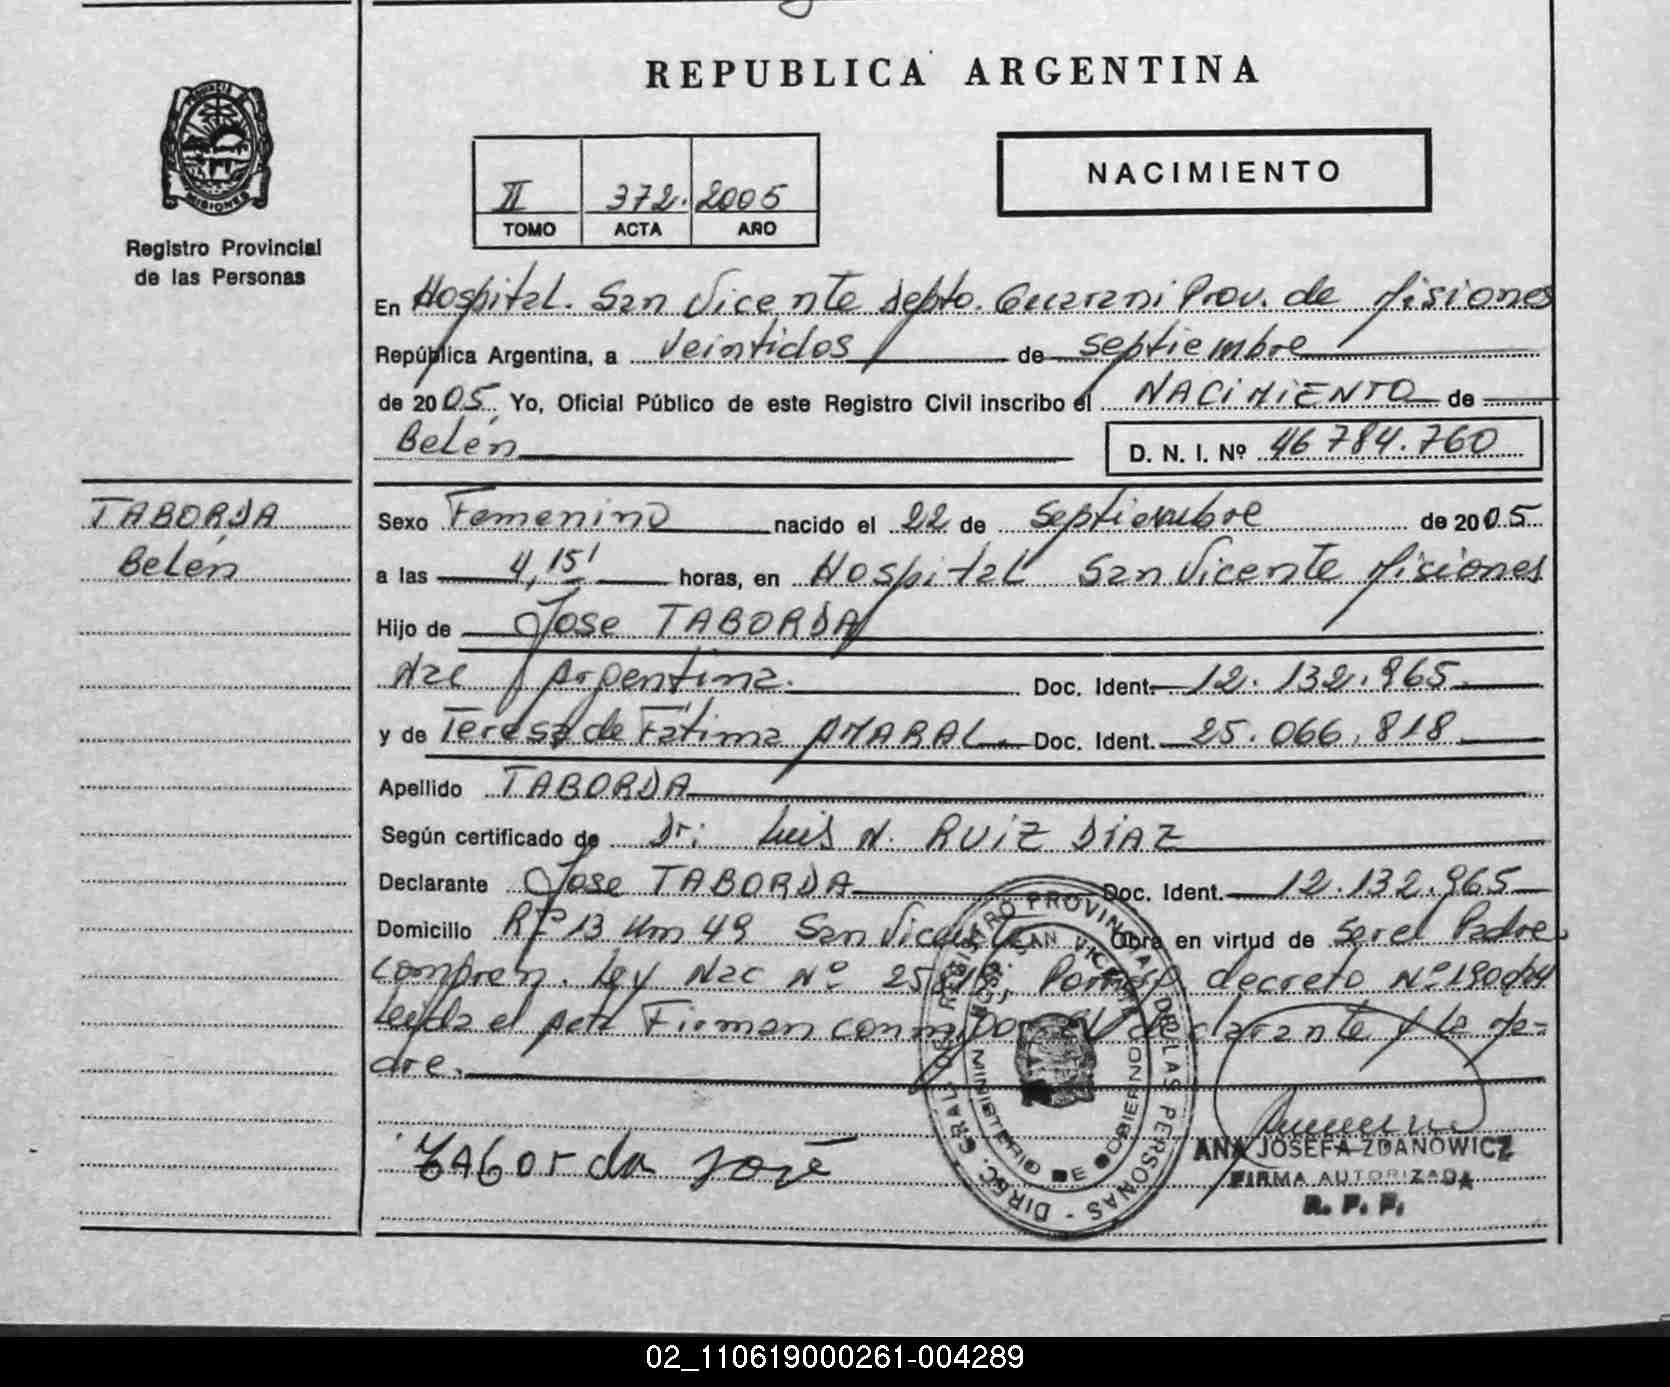 REPUBLICA ARGENTINA
PROVINCIA DE MISIONES
Registro Provincial
de las Personas
II 372. 2005
TOMO ACTA AÑO
NACIMIENTO
En Hospital. San Vicente Depto. Guarani Prov. de Misiones
República Argentina, a veintidos de septiembre
de 2005 Yo, Oficial Público de este Registro Civil inscribo el NACIMIENTO de
Belén D. N. I. Nº 46784.760
TABORDA
Belén
Sexo Femenino nacido el 22 de septiembre de 2005
a las 4,15' horas, en Hospital San Vicente Misiones
Hijo de Jose TABORDA
Nac Argentina. Doc. Ident. 12.132.965
y de Teresa de Fátima AMARAL Doc. Ident. 25.066.818
Apellido TABORDA
Según certificado de Dr: Luis N. RUIZ DIAZ
Declarante Jose TABORDA Doc. Ident. 12.132.965
Domicilio RP 13 Km 49 San Vicente Obra en virtud de ser el Padre
compren. Ley Nac Nº decreto Nº
Leida el acta Firman conmigo el declarante y la ma-
dre.
Taborda José
DIREC. GRAL. DE REGISTRO PROVINCIAL DE LAS PERSONAS
SAN VICENTE
MINISTERIO DE GOBIERNO
ANA JOSEFA ZDANOWICZ
FIRMA AUTORIZADA
R. P. P.
02_110619000261-004289